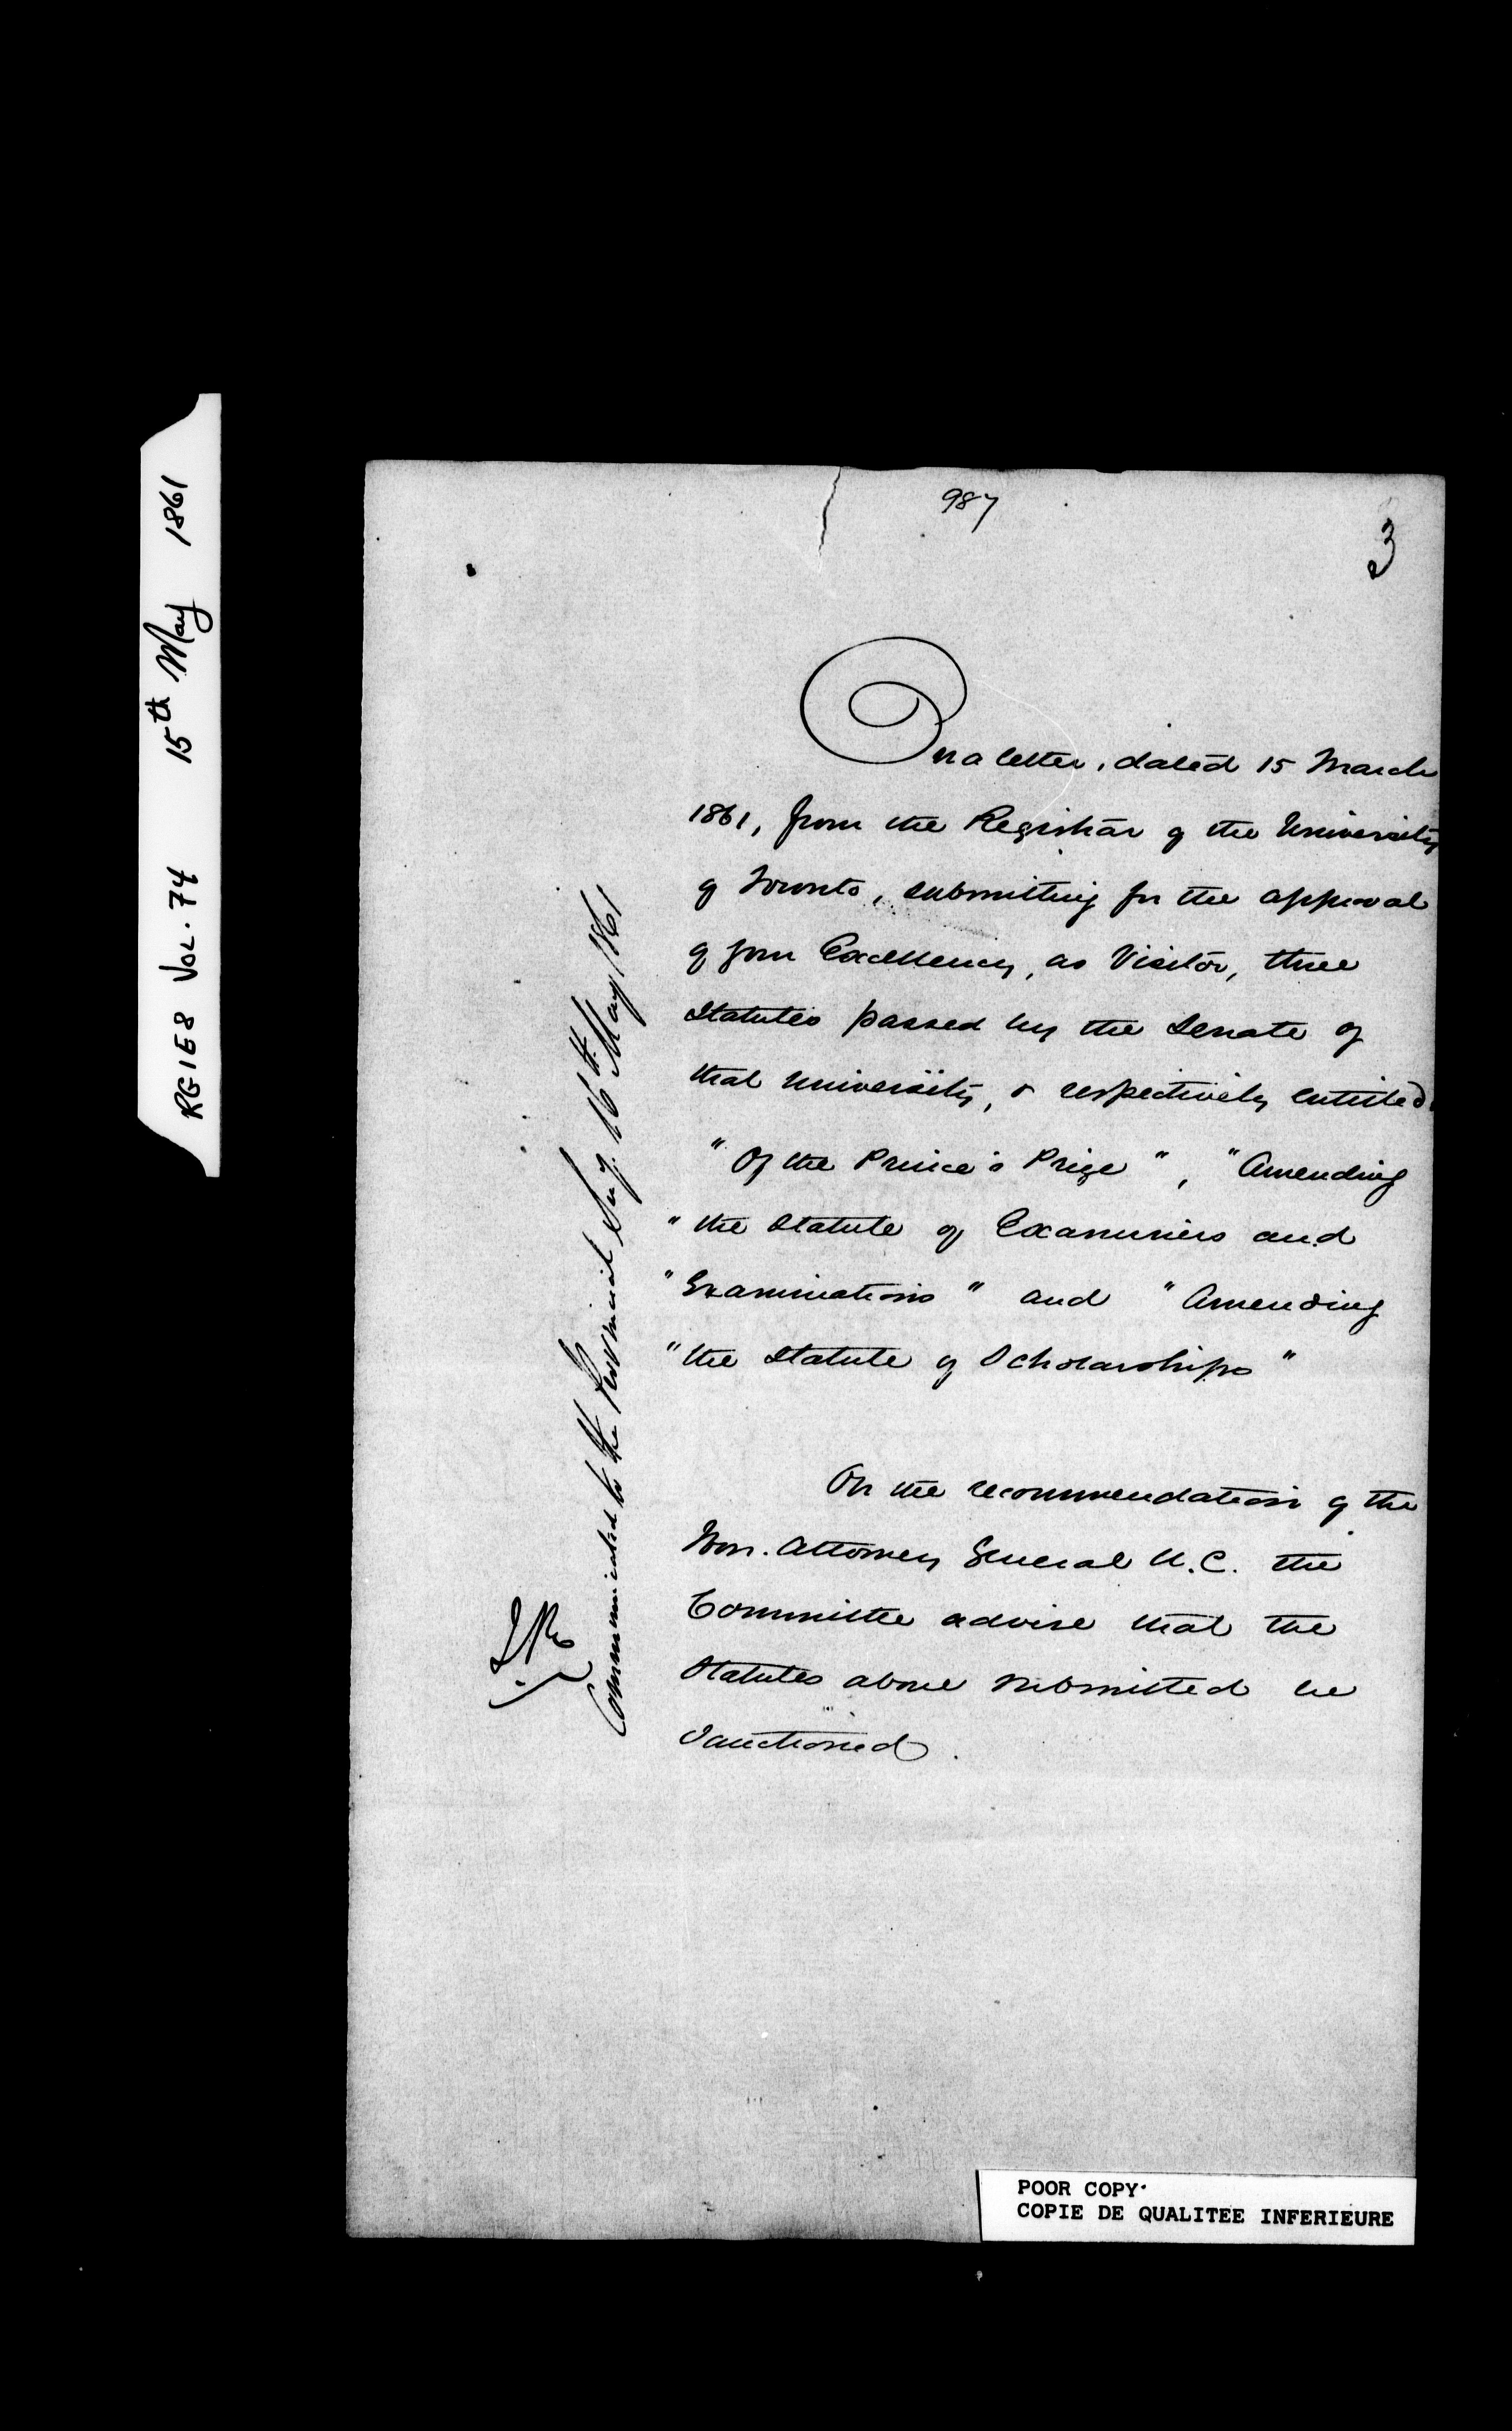 RG1E8 VOL. 74 15th May 1861
987
3
On a letter, dated 15 March
1861, from the Registrar of the University
of Toronto, submitting for the approval
of your Excellency, as Visitor, three
Statutes passed by the Senate of
that University, & respectively entitled
"Of the Prince's Prize", "Amending
"the Statute of Examiners and
"Examinations" and "Amending
"the Statute of Scholarships"
On the recommendation of the
Hon. Attorney General U.C. the
Committee advise that the
Statutes above submitted be
Sanctioned.
Communicated to the Provincial Secy. 16th May/1861
POOR COPY
COPIE DE QUALITEE INFERIEURE